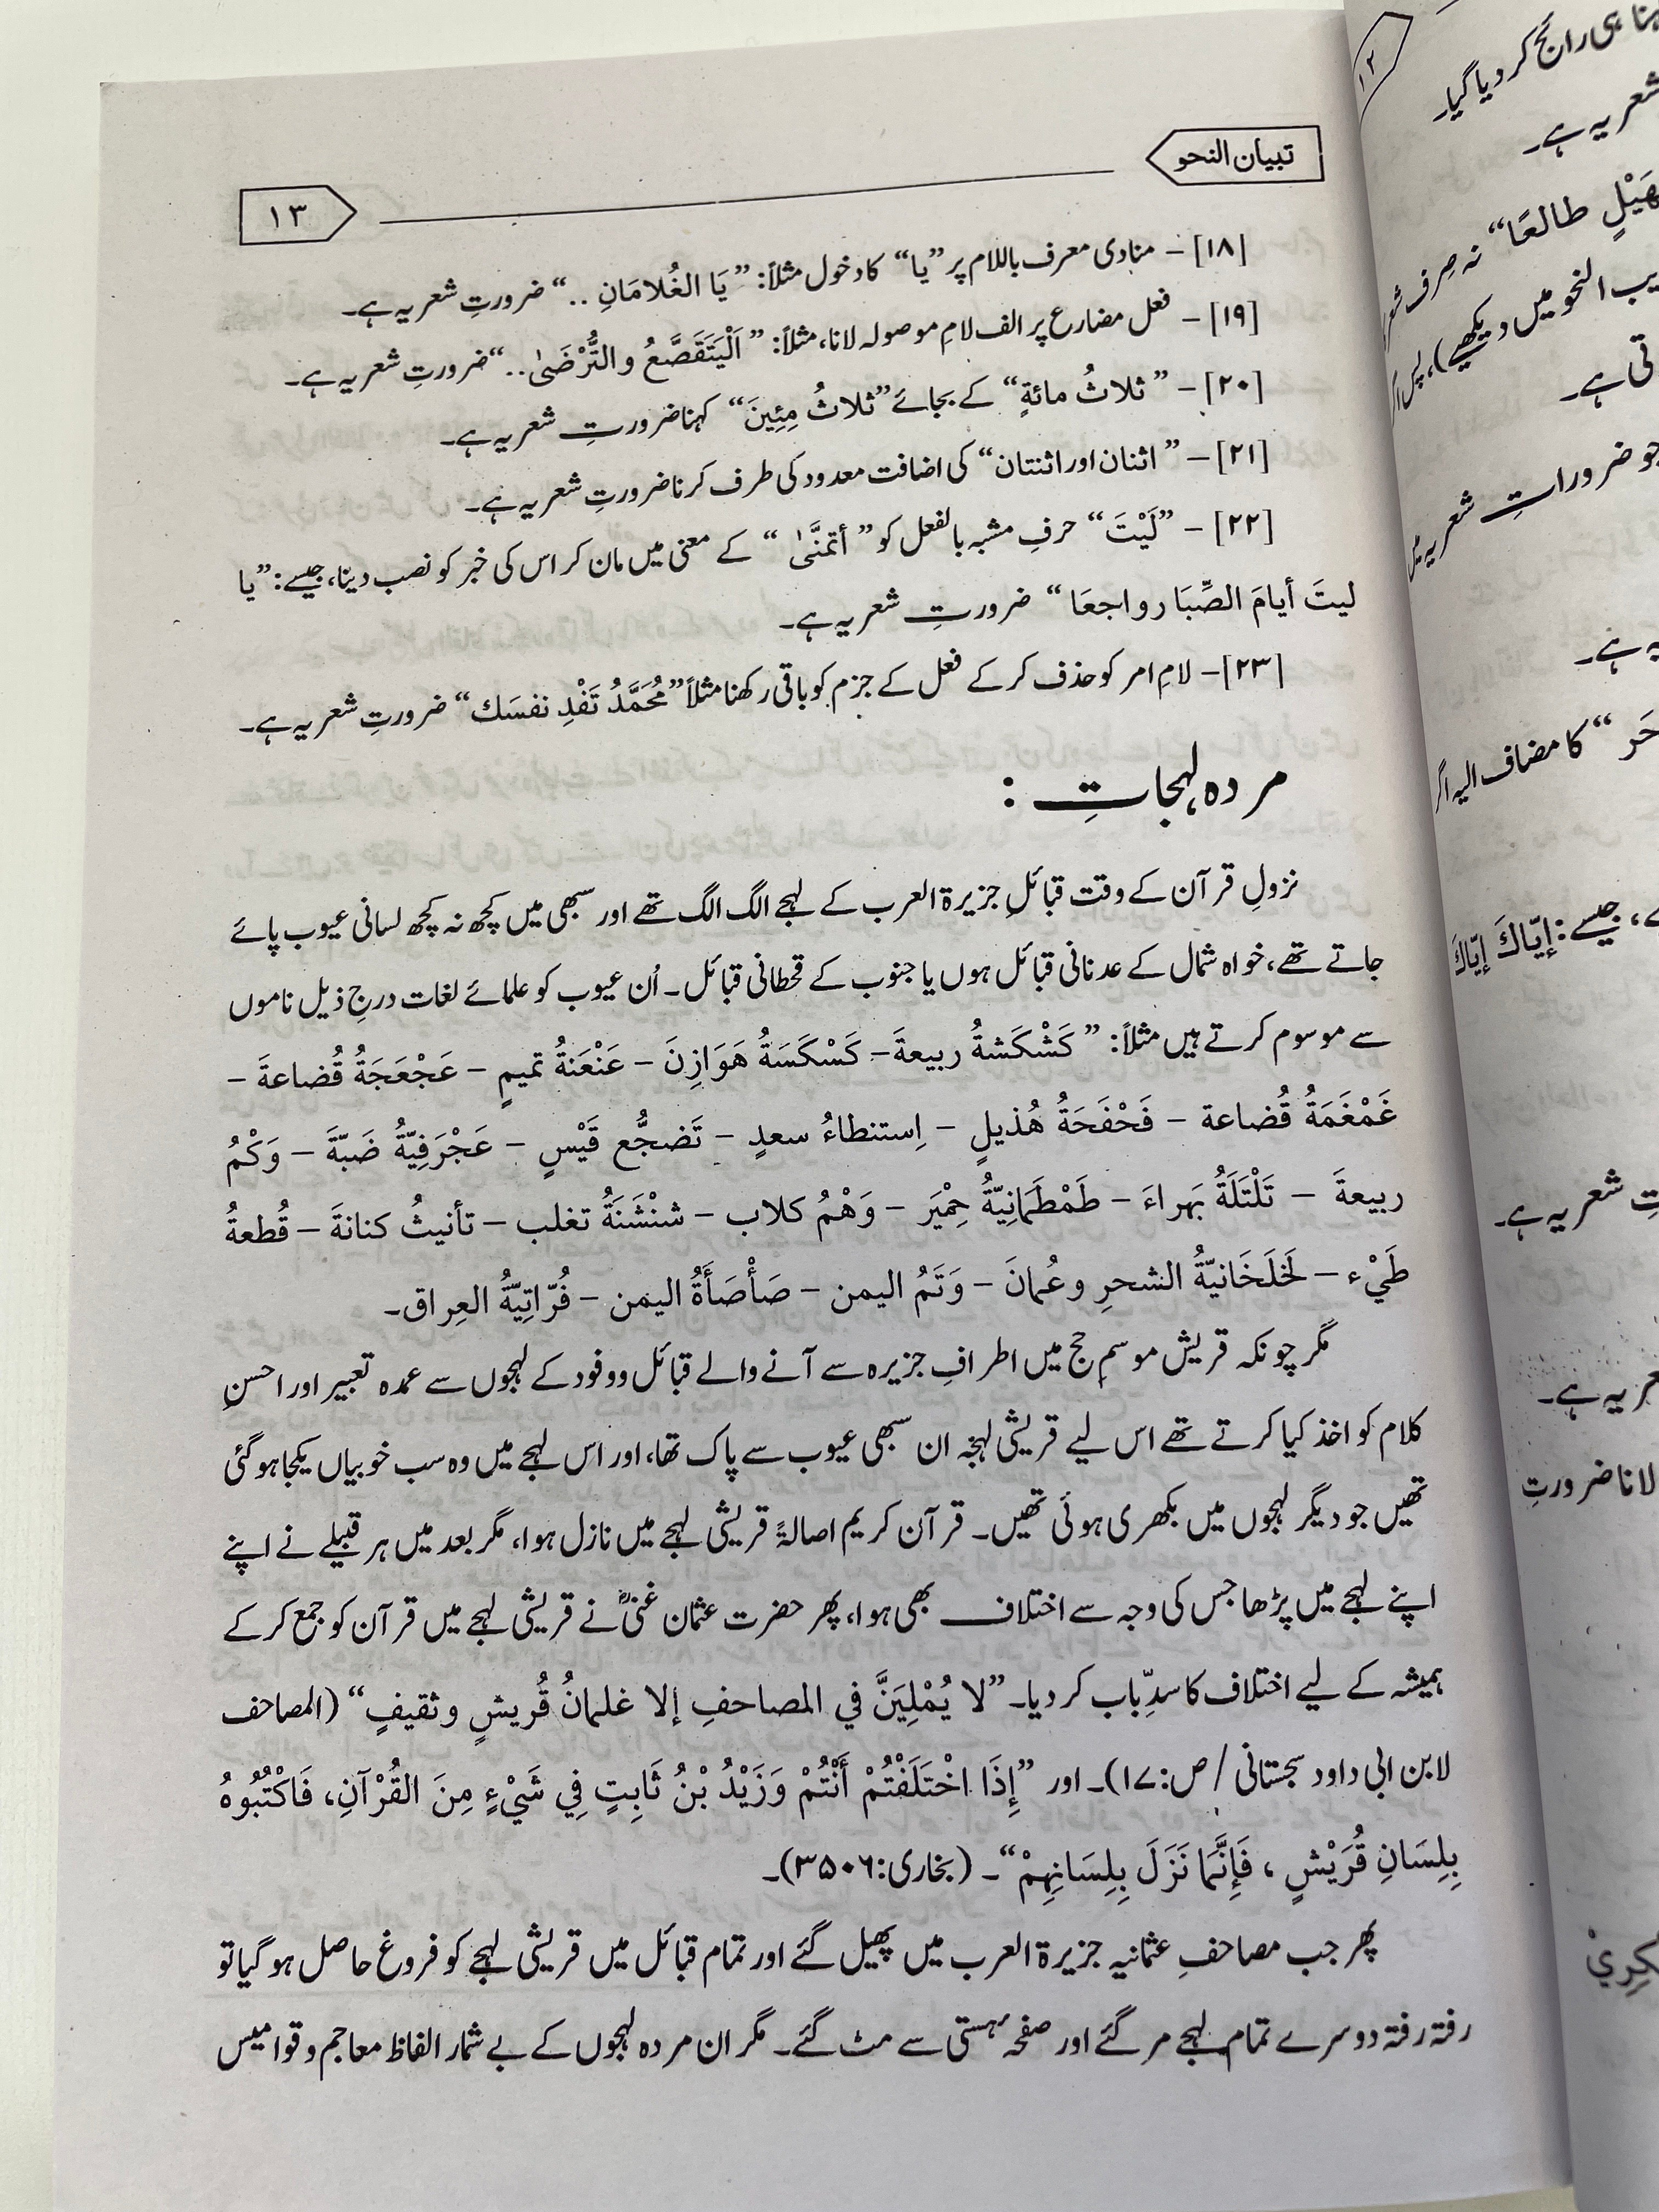 تبیان النحو
۱۳
[۱۸] – منادی معرف باللام پر ”یا“ کا دخول مثلاً: ”يَا الغُلامَانِ ..“ ضرورتِ شعریہ ہے۔
[۱۹] – فعل مضارع پر الف لامِ موصولہ لانا، مثلاً: ”اَلْيَتَقَصَّعُ والتُّرْضَىٰ..“ ضرورتِ شعریہ ہے۔
[۲۰] – ”ثلاثُ مائةٍ“ کے بجائے ”ثلاثُ مِئِينَ“ کہنا ضرورتِ شعریہ ہے۔
[۲۱] – ”اثنان اور اثنتان“ کی اضافت معدود کی طرف کرنا ضرورتِ شعریہ ہے۔
[۲۲] – ”لَيْتَ“ حرفِ مشبہ بالفعل کو ”أتمنَّىٰ“ کے معنی میں مان کر اس کی خبر کو نصب دینا، جیسے: ”یا
ليتَ أيامَ الصِّبَا رواجعَا“ ضرورتِ شعریہ ہے۔
[۲۳] – لامِ امر کو حذف کر کے فعل کے جزم کو باقی رکھنا مثلاً ”مُحَمَّدُ تَفْدِ نفسَك“ ضرورتِ شعریہ ہے۔
مردہ لہجات :
نزولِ قرآن کے وقت قبائلِ جزیرۃ العرب کے لہجے الگ الگ تھے اور سبھی میں کچھ نہ کچھ لسانی عیوب پائے
جاتے تھے، خواہ شمال کے عدنانی قبائل ہوں یا جنوب کے قحطانی قبائل۔ اُن عیوب کو علمائے لغات درجِ ذیل ناموں
سے موسوم کرتے ہیں مثلاً: ”كَشْكَشةُ ربيعةَ – كَسْكَسَةُ هَوَازِنَ – عَنْعَنةُ تميمٍ – عَجْعَجَةُ قُضاعةَ –
غَمْغَمَةُ قُضاعة – فَحْفَحَةُ هُذيلٍ – اِستنطاءُ سعدٍ – تَضجُّع قَيْسٍ – عَجْرَفِيّةُ ضَبّةَ – وَكْمُ
ربيعةَ – تَلْتَلَةُ بَهراءَ – طَمْطَمَانِيّةُ حِمْيَر – وَهْمُ كلاب – شنْشَنَةُ تغلب – تأنيثُ كنانةَ – قُطعةُ
طَيْء – لَخلَخَانيّةُ الشحرِ وعُمانَ – وَتَمُ اليمن – صَأْصَأَةُ اليمن – فُرّاتِيّةُ العِراق۔
مگر چونکہ قریش موسمِ حج میں اطرافِ جزیرہ سے آنے والے قبائل وفود کے لہجوں سے عمدہ تعبیر اور احسنِ
کلام کو اخذ کیا کرتے تھے اس لیے قریشی لہجہ ان سبھی عیوب سے پاک تھا، اور اس لہجے میں وہ سب خوبیاں یکجا ہو گئی
تھیں جو دیگر لہجوں میں بکھری ہوئی تھیں۔ قرآن کریم اصالۃً قریشی لہجے میں نازل ہوا، مگر بعد میں ہر قبیلے نے اپنے
اپنے لہجے میں پڑھا جس کی وجہ سے اختلاف بھی ہوا، پھر حضرت عثمان غنیؓ نے قریشی لہجے میں قرآن کو جمع کر کے
ہمیشہ کے لیے اختلاف کا سدِّ باب کر دیا۔ ”لا يُمْلِيَنَّ في المصاحفِ إلا غلمانُ قُريشٍ وثقيفٍ“ (المصاحف
لابن ابی داود سجستانی / ص:۱۷)۔ اور ”إِذَا اخْتَلَفْتُمْ أَنْتُمْ وَزَيْدُ بْنُ ثَابِتٍ فِي شَيْءٍ مِنَ القُرْآنِ، فَاكْتُبُوهُ
بِلِسَانِ قُرَيْشٍ ، فَإِنَّمَا نَزَلَ بِلِسَانِهِمْ“۔ (بخاری:۳۵۰۶)۔
پھر جب مصاحفِ عثمانیہ جزیرۃ العرب میں پھیل گئے اور تمام قبائل میں قریشی لہجے کو فروغ حاصل ہو گیا تو
رفتہ رفتہ دوسرے تمام لہجے مر گئے اور صفحۂ ہستی سے مٹ گئے۔ مگر ان مردہ لہجوں کے بے شمار الفاظ معاجم و قوامیس
۱۲
ہی رائج کر دیا گیا۔
شعریہ ہے۔
طالعًا“ نہ صرف
النحو میں دیکھیے)، پس
تی ہے۔
جو ضروراتِ شعریہ
ہے۔
“ کا مضاف الیہ اگر
جیسے: إيّاكَ إيّاكَ
شعریہ ہے۔
ہے۔
لانا ضرورتِ